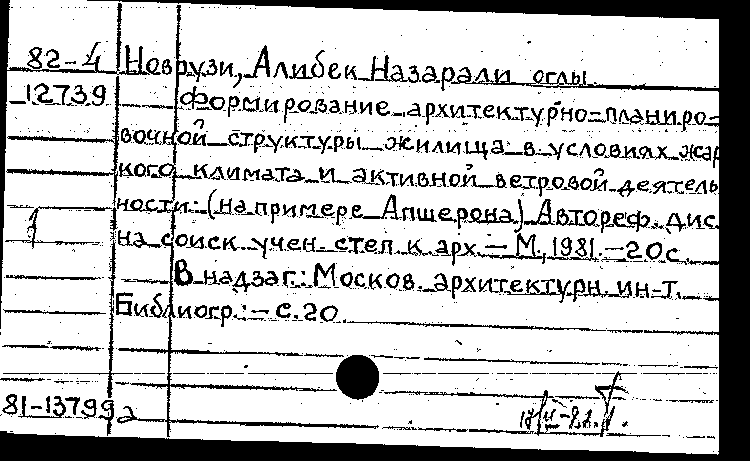 82-4 Новрузи, Алибек Назарали оглы
12739 Формирование архитектурно-планиро-
вочной структуры жилища в условиях жар
кого климата и активной ветровой деятель
ности: (на примере Апшерона) Автореф. дис.
на соиск учен. степ. к. арх. — М., 1981. — 20с.
В надзаг.: Москов. архитектурн. ин-т.
Библиогр.: — с. 20.
81-13799а